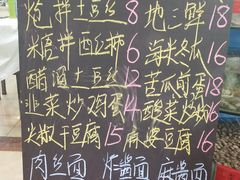 炝拌土豆丝 8 地三鲜 18
糖拌西红柿 6 海米冬瓜 16
醋溜土豆丝 12 苦瓜煎蛋 18
韭菜炒鸡蛋 14 酸菜炒粉 16
尖椒干豆腐 15 麻婆豆腐 16
肉丝面 炸酱面 麻酱面